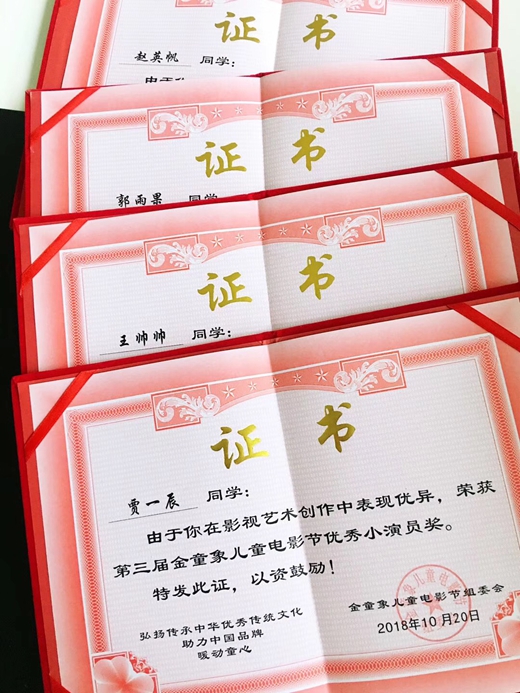 证 书
赵英帆 同学:
证 书
郭雨果 同学:
证 书
王帅帅 同学:
证 书
贾一辰 同学:
由于你在影视艺术创作中表现优异,荣获
第三届金童象儿童电影节优秀小演员奖。
特发此证,以资鼓励!
弘扬传承中华优秀传统文化
助力中国品牌
暖动童心
金童象儿童电影节组委会
2018年10月20日